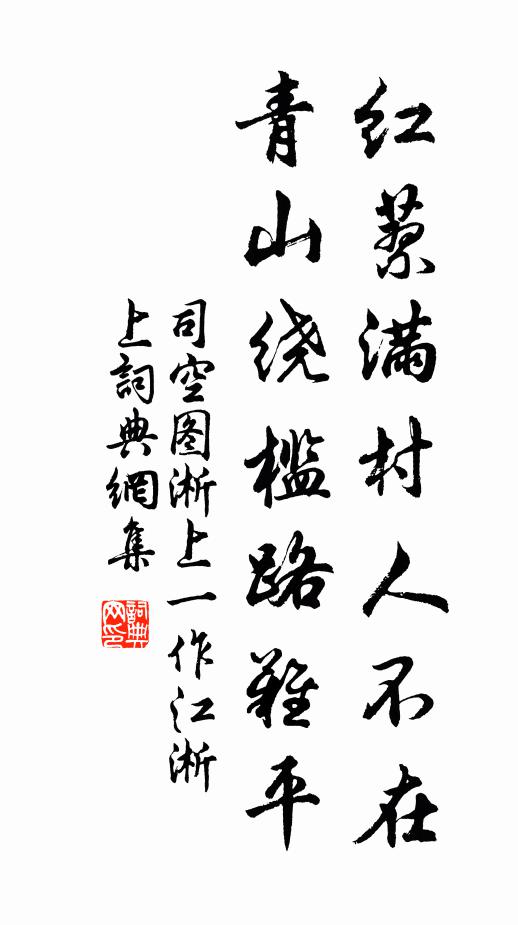 红蓼满村人不在
青山绕槛路难平
司空图淅上一作江淅
上詞典網集
詞典網印